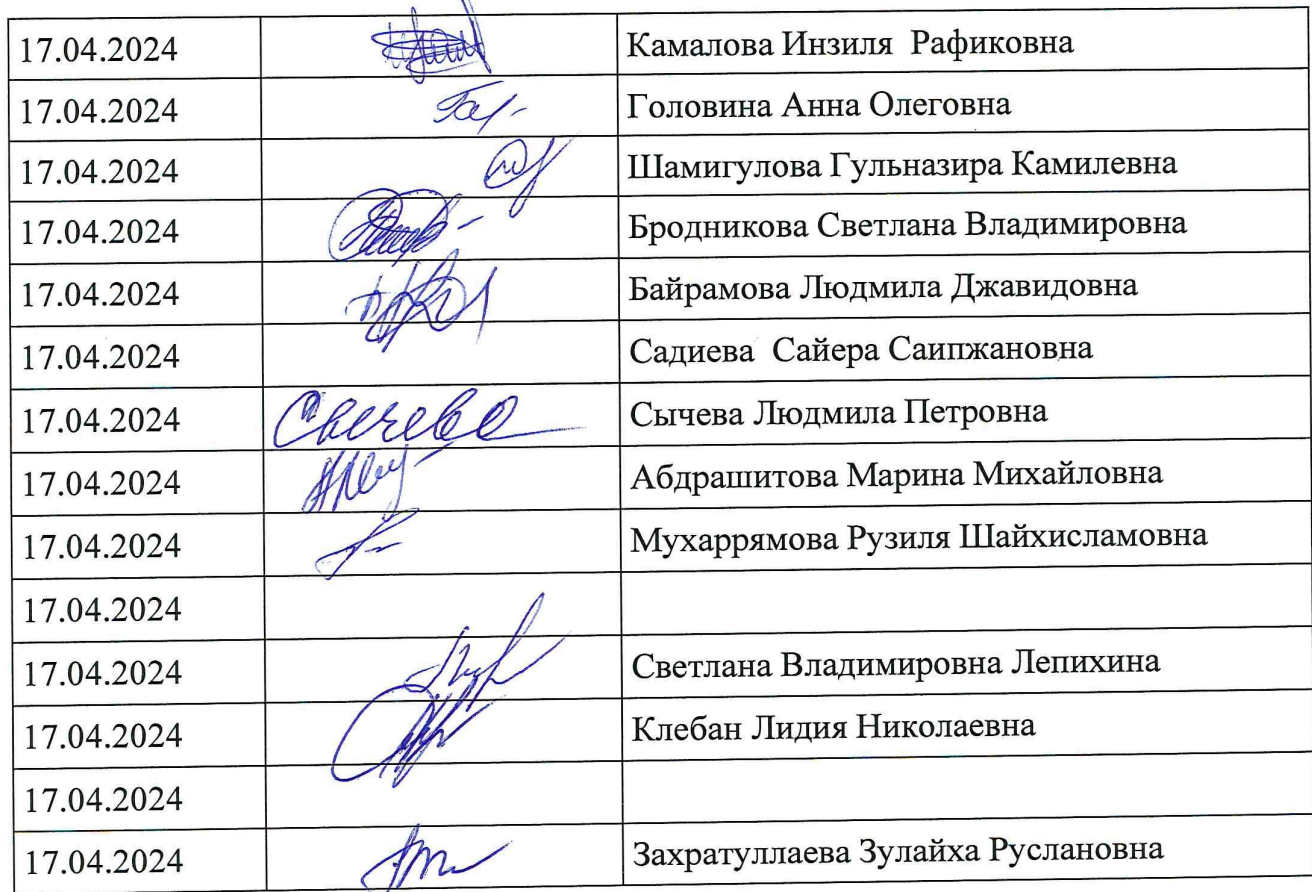 17.04.2024 Камалова Инзиля Рафиковна
17.04.2024 Головина Анна Олеговна
17.04.2024 Шамигулова Гульназира Камилевна
17.04.2024 Бродникова Светлана Владимировна
17.04.2024 Байрамова Людмила Джавидовна
17.04.2024 Садиева Сайера Саипжановна
17.04.2024 Сычева Сычева Людмила Петровна
17.04.2024 Абдрашитова Марина Михайловна
17.04.2024 Мухаррямова Рузиля Шайхисламовна
17.04.2024
17.04.2024 Светлана Владимировна Лепихина
17.04.2024 Клебан Лидия Николаевна
17.04.2024
17.04.2024 Захратуллаева Зулайха Руслановна